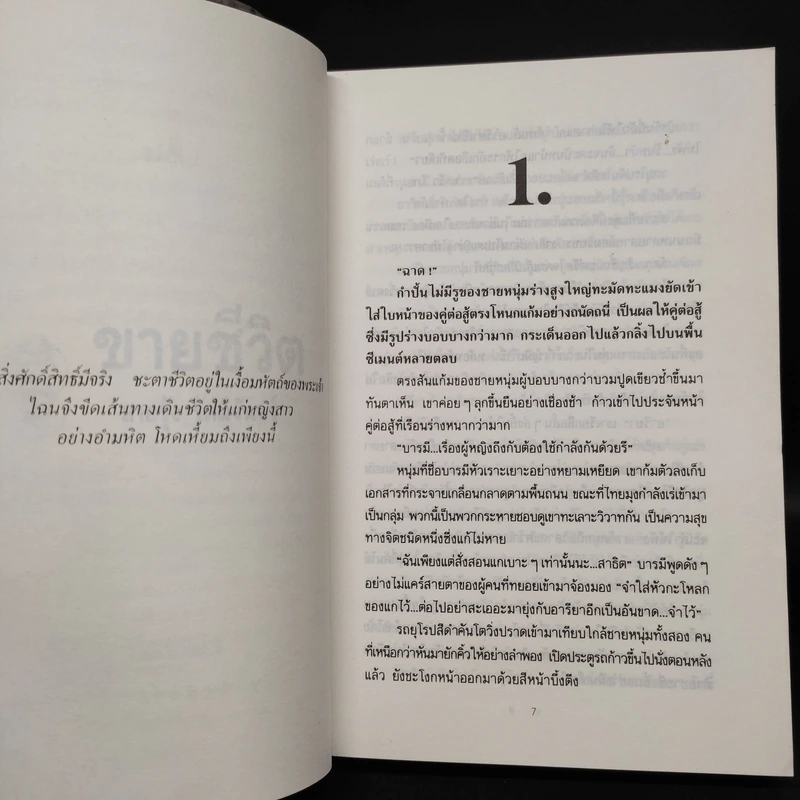 ขายชีวิต
สิ่งศักดิ์สิทธิ์มีจริง ชะตาชีวิตอยู่ในเงื้อมหัตถ์ของพระเจ้า
ไฉนจึงขีดเส้นทางเดินชีวิตให้แก่หญิงสาว
อย่างอำมหิต โหดเหี้ยมถึงเพียงนี้
1.
“ฉาด !”
กำปั้นไม่มีรูของชายหนุ่มร่างสูงใหญ่ทะมัดทะแมงยัดเข้า
ใส่ใบหน้าของคู่ต่อสู้ตรงโหนกแก้มอย่างถนัดถนี่ เป็นผลให้คู่ต่อสู้
ซึ่งมีรูปร่างบอบบางกว่ามาก กระเด็นออกไปแล้วกลิ้งไปบนพื้น
ซีเมนต์หลายตลบ
ตรงสันแก้มของชายหนุ่มผู้บอบบางกว่าบวมปูดเขียวช้ำขึ้นมา
ทันตาเห็น เขาค่อยๆ ลุกขึ้นยืนอย่างเชื่องช้า ก้าวเข้าไปประจันหน้า
คู่ต่อสู้ที่เรือนร่างหนากว่ามาก
“บารมี...เรื่องผู้หญิงถึงกับต้องใช้กำลังกันด้วยรึ”
หนุ่มที่ชื่อบารมีหัวเราะเยาะอย่างหยามเหยียด เขาก้มตัวลงเก็บ
เอกสารที่กระจายเกลื่อนกลาดตามพื้นถนน ขณะที่ไทยมุงกำลังเร่เข้ามา
เป็นกลุ่ม พวกนี้เป็นพวกกระหายชอบดูเขาทะเลาะวิวาทกัน เป็นความสุข
ทางจิตชนิดหนึ่งซึ่งแก้ไม่หาย
“ฉันเพียงแต่สั่งสอนแกเบาะๆ เท่านั้นนะ...สาธิต” บารมีพูดดังๆ
อย่างไม่แคร์สายตาของผู้คนที่ทยอยเข้ามาจ้องมอง “จำใส่หัวกะโหลก
ของแกไว้...ต่อไปอย่าสะเออะมายุ่งกับอารียาอีกเป็นอันขาด...จำไว้”
รถยุโรปสีดำคันโตวิ่งปราดเข้ามาเทียบใกล้ชายหนุ่มทั้งสอง คน
ที่เหนือกว่าหันมายักคิ้วให้อย่างลำพอง เปิดประตูรถก้าวขึ้นไปนั่งตอนหลัง
แล้ว ยังชะโงกหน้าออกมาด้วยสีหน้าบึ้งตึง
7